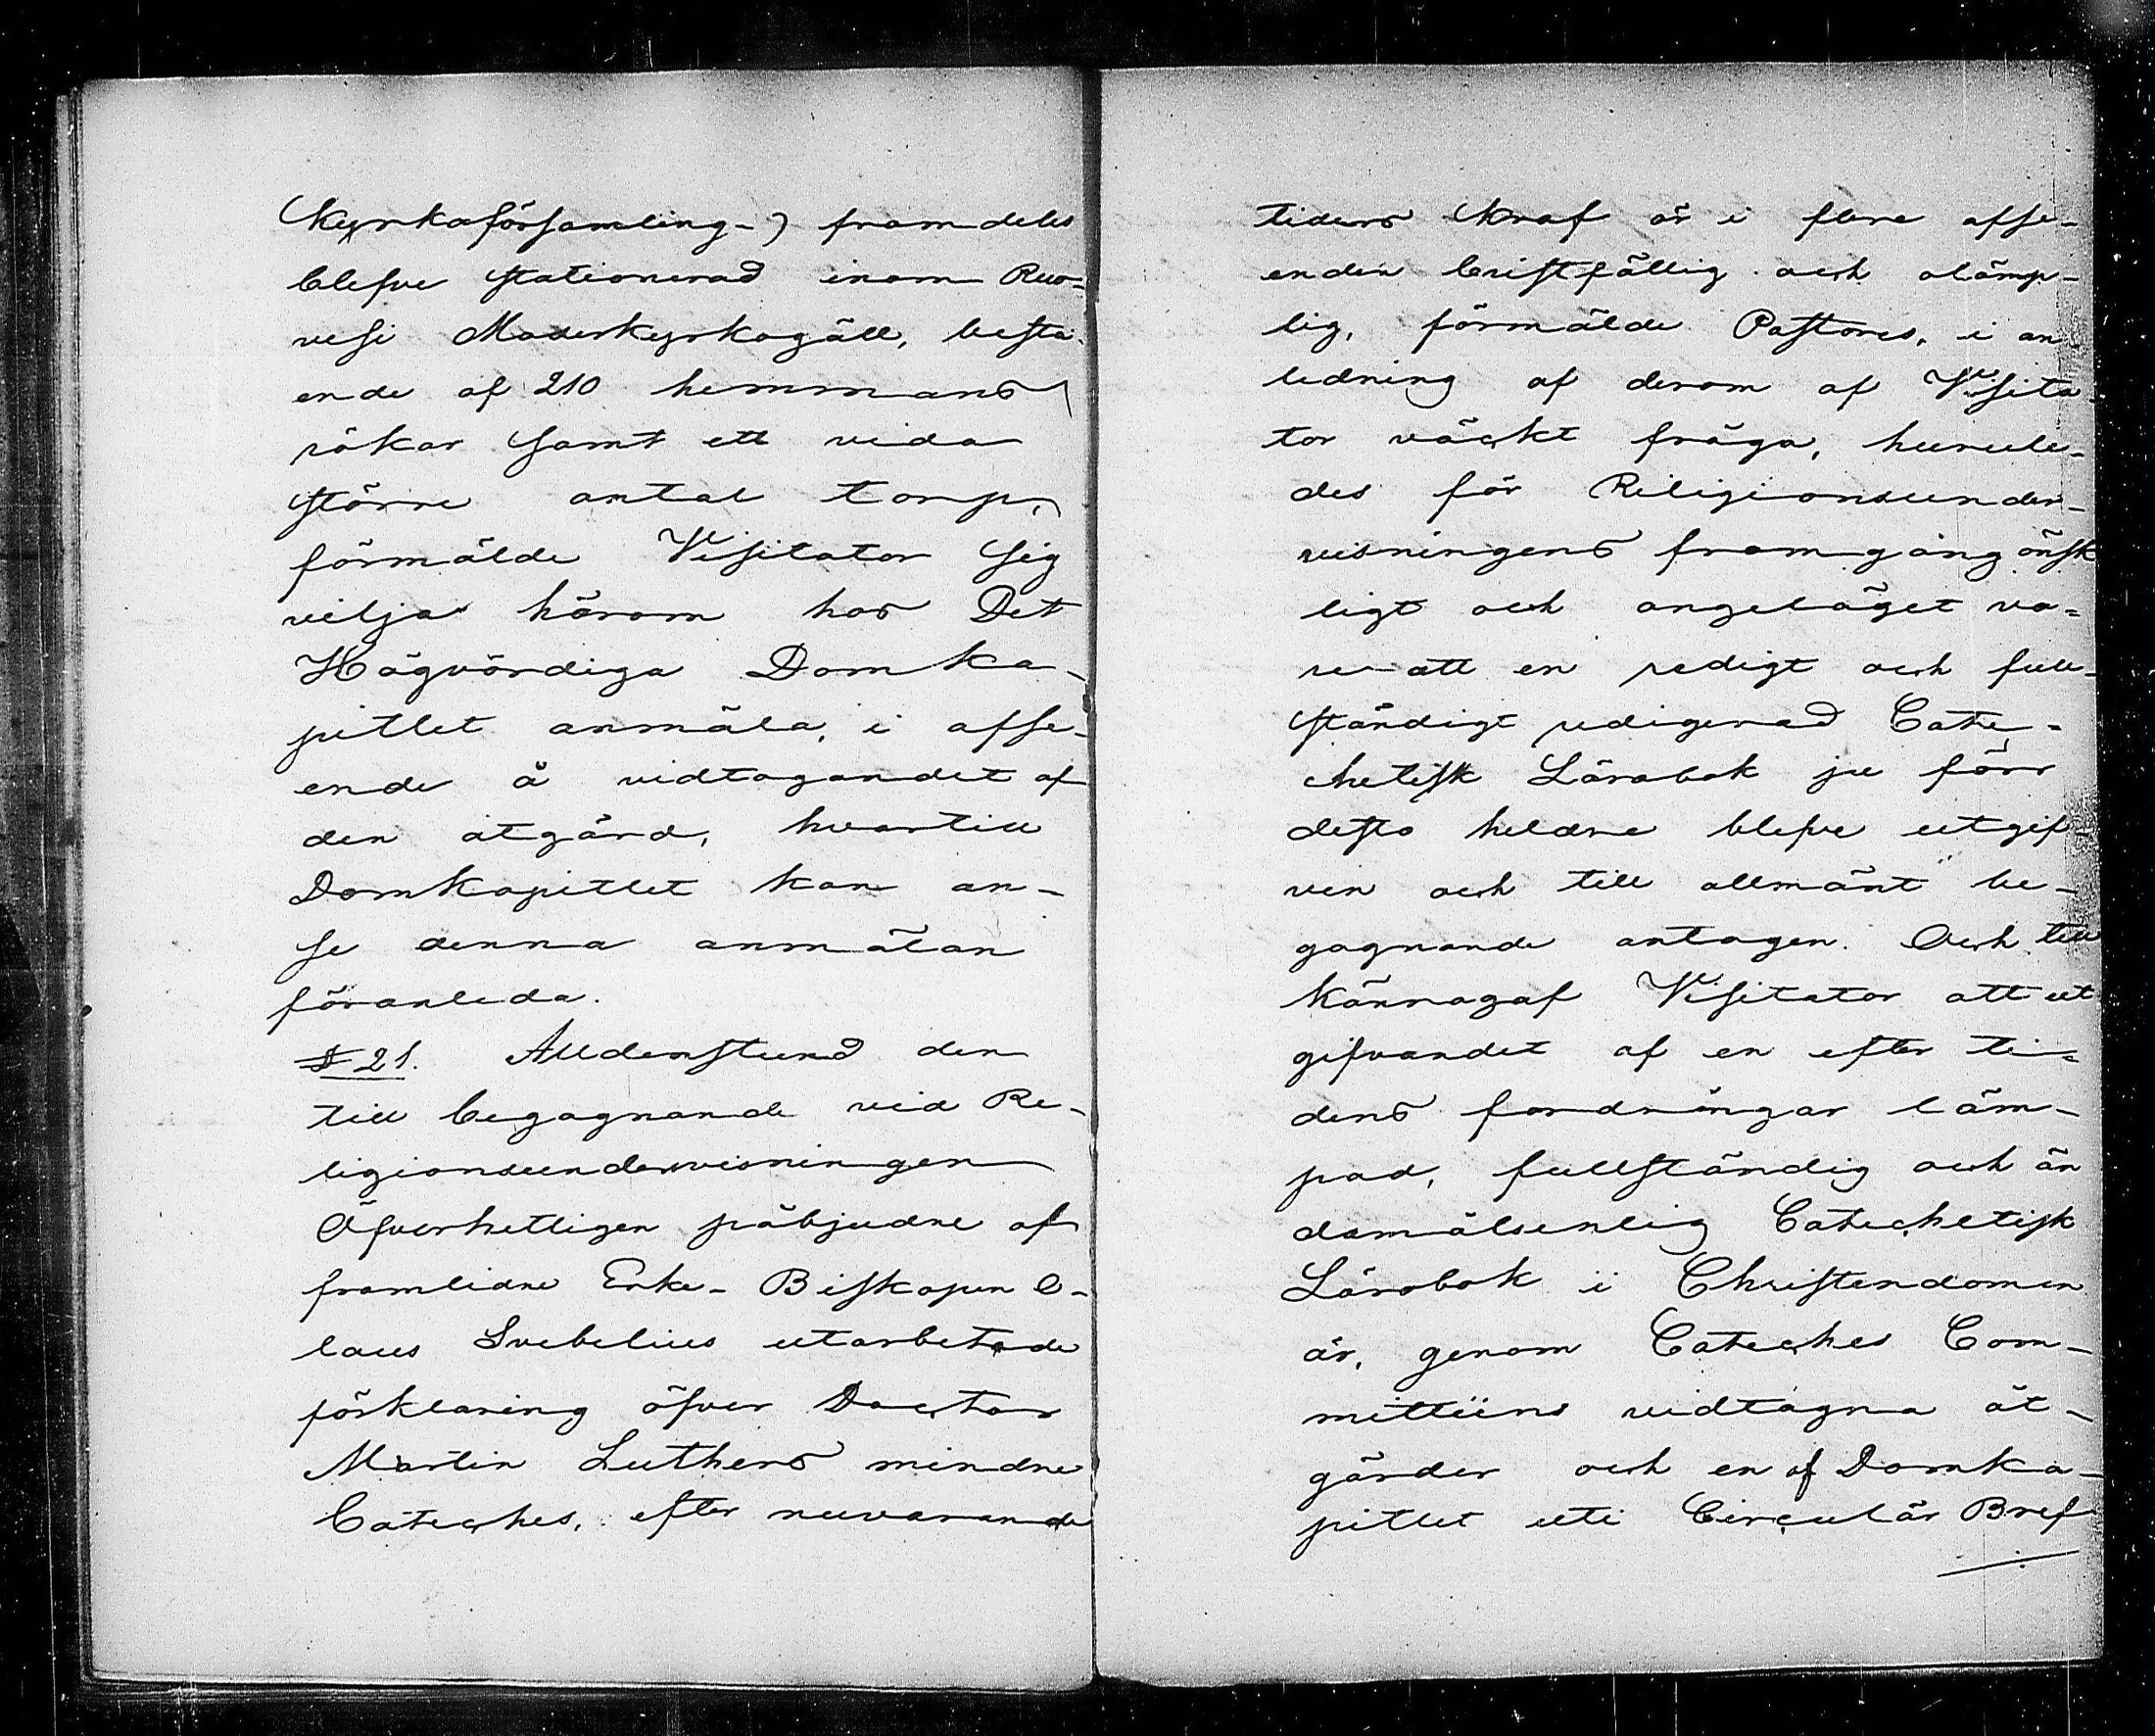 kyrkoförsamling-) framdeles
blefve stationerad inom Ruo-
vesi Moderkyrkogäll, bestå-
ende af 210 hemmans
rökar samt ett vida
större antal torp,
förmälde Visitator sig
vilja härom hos Det
Högvördiga Domka-
pitlet anmäla, i afse-
ende å vidtagandet af
den åtgärd, hvartill
Domkapitlet kan an-
se denna anmälan
föranleda.
§ 21. Alldenstund den
till begagnande vid Re-
ligionsundervisningen
Öfverhetligen påbjudne af
framlidne Erke-Biskopen O-
laus Svebelius utarbetade
förklaring öfver Doctor
Martin Luthers mindre
Cateches, efter nuvarande
tiders kraf är i flere afse-
enden bristfällig och olämp-
lig, förmälde Pastores, i an-
ledning af derom af Visita-
tor väckt fråga, hurule-
des för Religionsunder-
visningens framgång önsk
ligt och angeläget va-
re att en redigt och full-
ständigt redigerad Cate-
chetisk Lärobok ju förr
desto heldre blefve utgif-
ven och till allmänt be-
gagnande antagen. Och till
kännagaf Visitator att ut
gifvandet af en efter ti-
dens fordringar läm-
pad, fullständig och än
damålsenlig Catechetisk
Lärobok i Christendomen
är, genom Cateches Com-
mitteens vidtagna åt-
gärder och en af Domka-
pitlet uti Circulär Bref